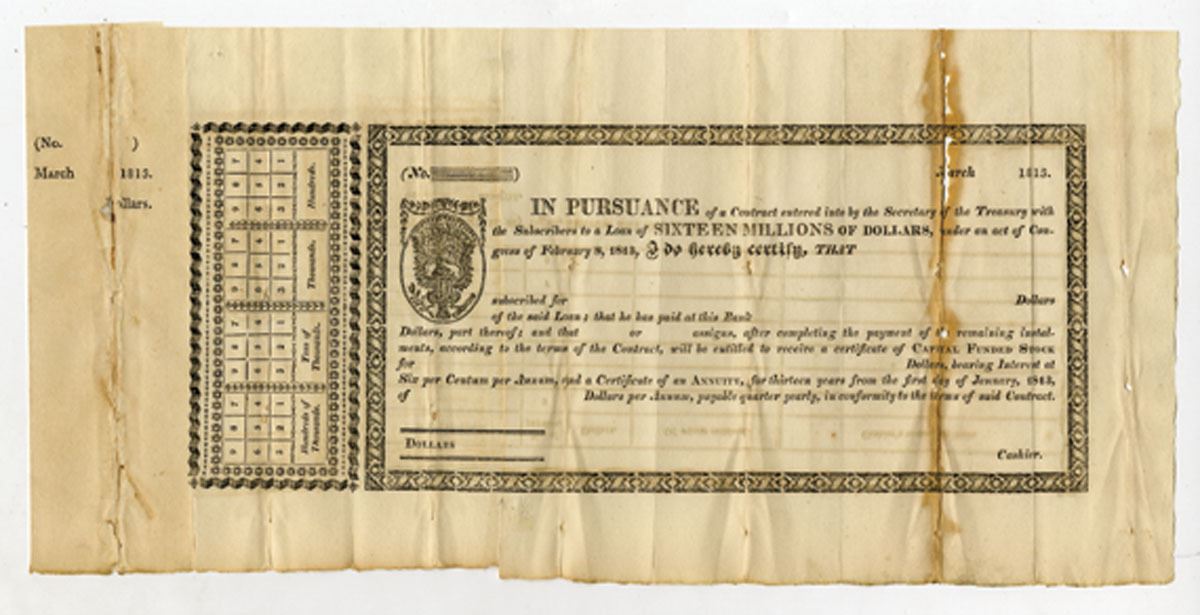 (No. )
March 1813.
Dollars.
7 4 1
8 5 2
9 6 3
Hundreds.
7 4 1
8 5 2
9 6 3
Thousands.
7 4 1
8 5 2
9 6 3
Tens of
Thousands.
7 4 1
8 5 2
9 6 3
Hundreds of
Thousands.
(No. )
March 1813.
IN PURSUANCE of a Contract entered into by the Secretary of the Treasury with
the Subscribers to a Loan of SIXTEEN MILLIONS OF DOLLARS, under an act of Con-
gress of February 8, 1813, I do hereby certify, THAT
subscribed for Dollars
of the said Loan; that he has paid at this Bank
Dollars, part thereof; and that or assigns, after completing the payment of the remaining instal-
ments, according to the terms of the Contract, will be entitled to receive a certificate of CAPITAL FUNDED STOCK
for Dollars, bearing Interest at
Six per Centum per Annum, and a Certificate of an ANNUITY, for thirteen years from the first day of January, 1813,
of Dollars per Annum, payable quarter yearly, in conformity to the terms of said Contract.
DOLLARS
Cashier.